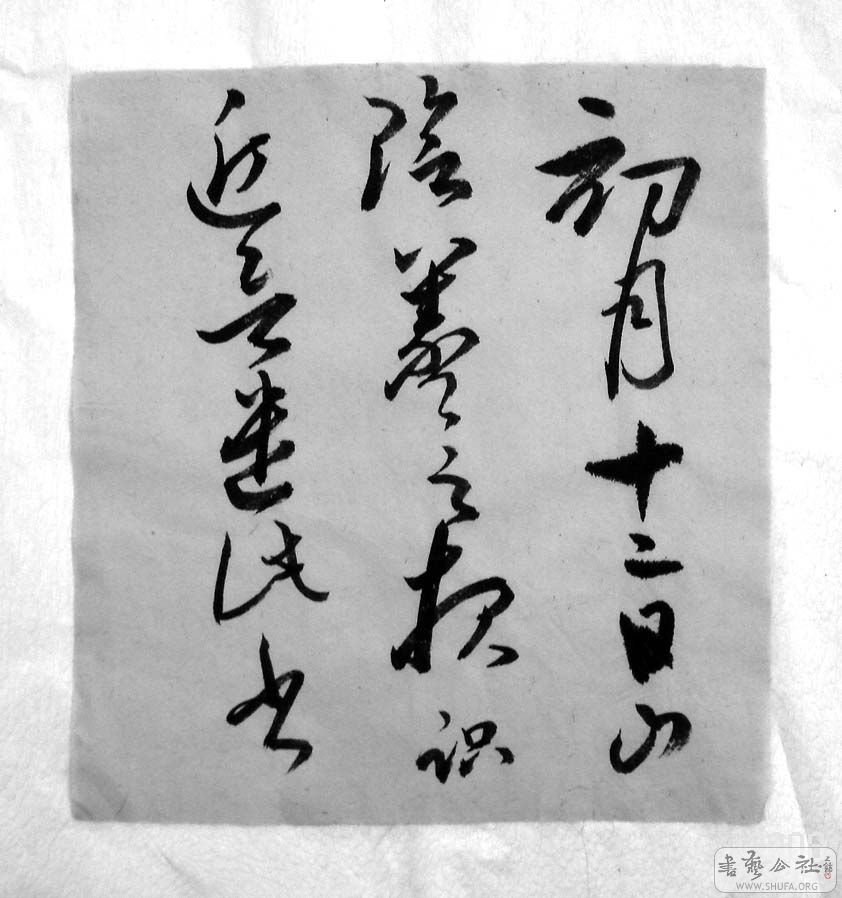 初月十二日山
陰羲之报识
近欲遣此书
書藝公社
WWW.SHUFA.ORG